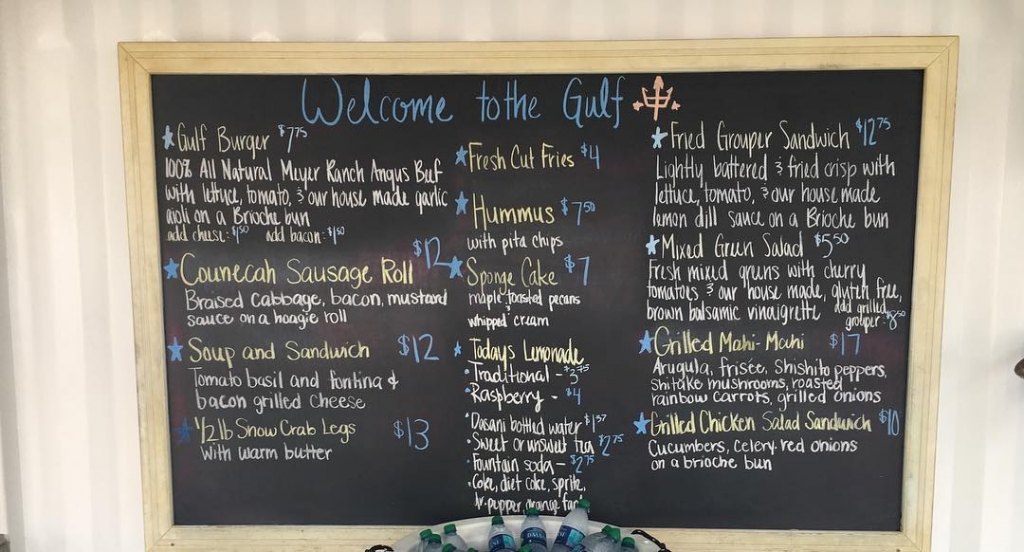 Welcome to the Gulf
Gulf Burger $7.75
100% All Natural Meyer Ranch Angus Beef
with lettuce, tomato, & our house made garlic
aioli on a Brioche bun
add cheese: $1.50 add bacon: $1.50
Counecah Sausage Roll $12
Braised cabbage, bacon, mustard
sauce on a hoagie roll
Soup and Sandwich $12
Tomato basil and fontina &
bacon grilled cheese
1/2 lb Snow Crab Legs $13
with warm butter
Fresh Cut Fries $4
Hummus $7.50
with pita chips
Sponge Cake $7
maple toasted pecans
whipped cream
Todays Lemonade
Traditional - $3.75
Raspberry - $4
Dasani bottled water
Sweet or unsweet tea $2.75
Fountain soda - $2.75
Coke, diet coke, sprite,
dr. pepper orange
Fried Grouper Sandwich $12.75
Lightly battered & fried crisp with
lettuce, tomato, & our house made
lemon dill sauce on a Brioche bun
Mixed Green Salad $5.50
Fresh mixed greens with cherry
tomatoes & our house made, gluten free,
brown balsamic vinaigrette add grilled
grouper -
Grilled Mahi-Mahi $17
Arugula, frisée, shishito peppers,
shitake mushrooms, roasted
rainbow carrots, grilled onions
Grilled Chicken Salad Sandwich $10
Cucumbers, celery, red onions
on a brioche bun